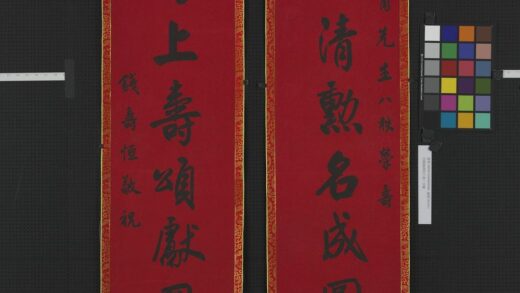 先生八秩榮壽
清勳名成
上壽頌獻
錢壽恒敬祝